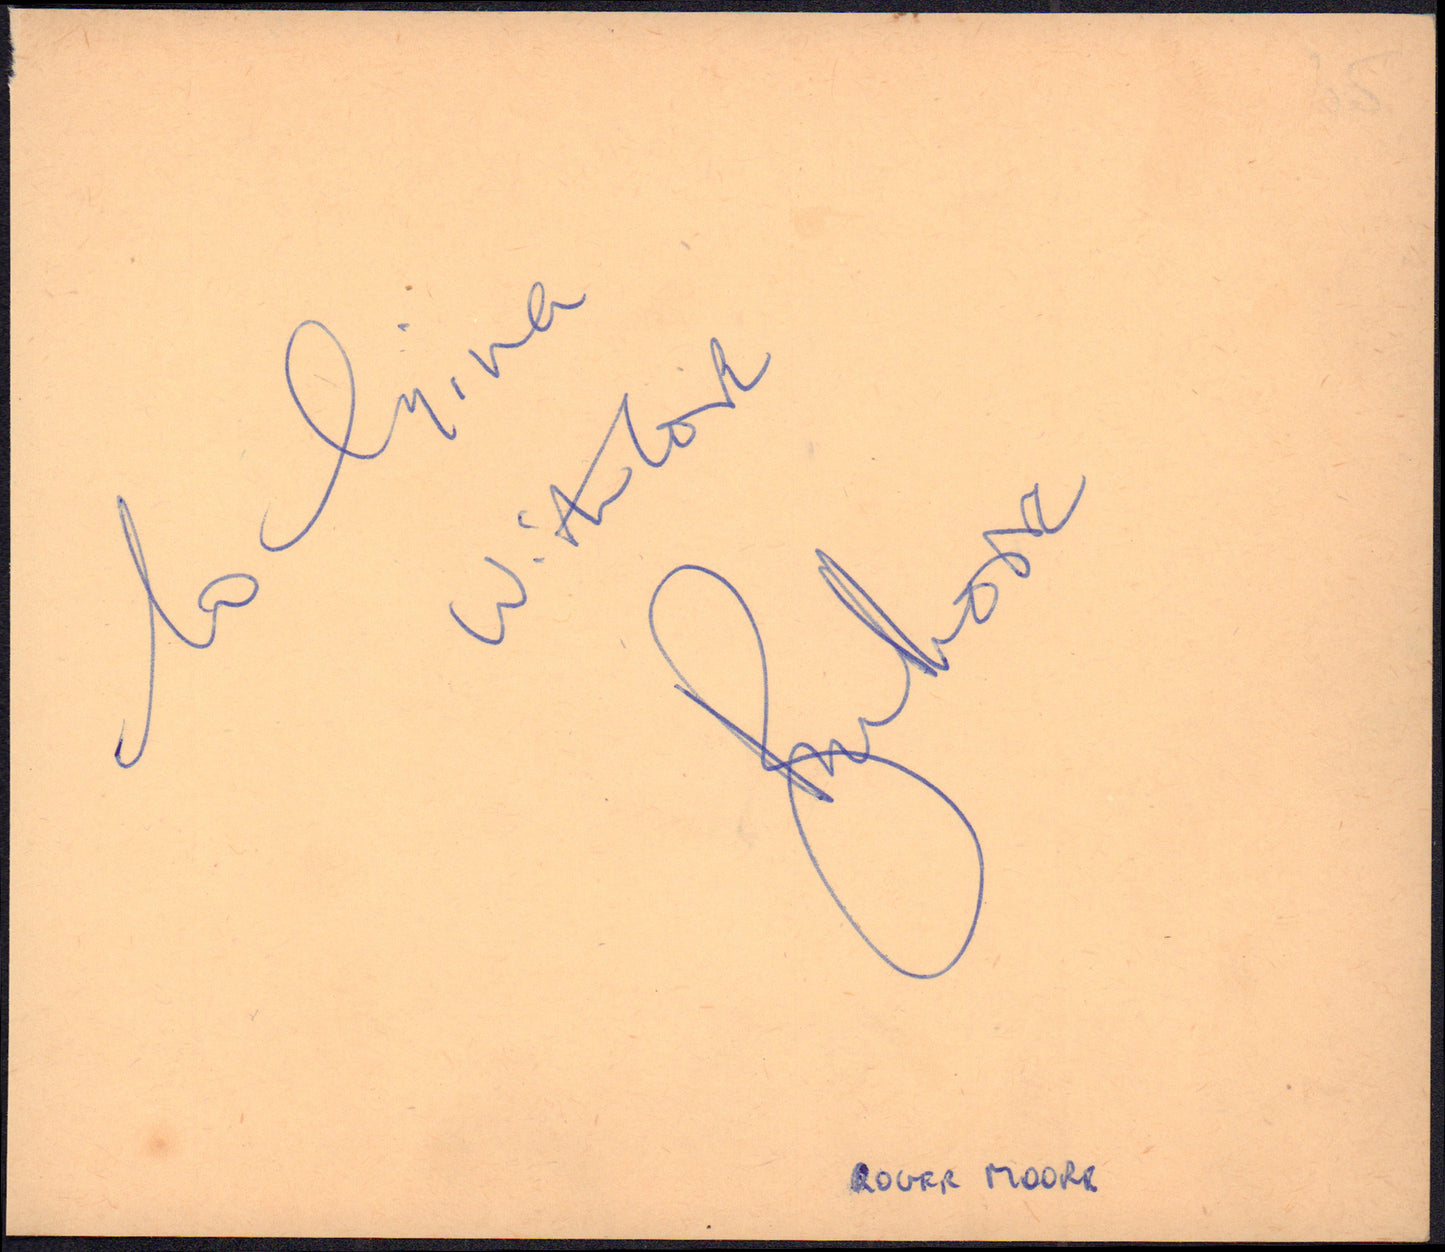 To Gina
With love
Roger Moore
ROGER MOORE